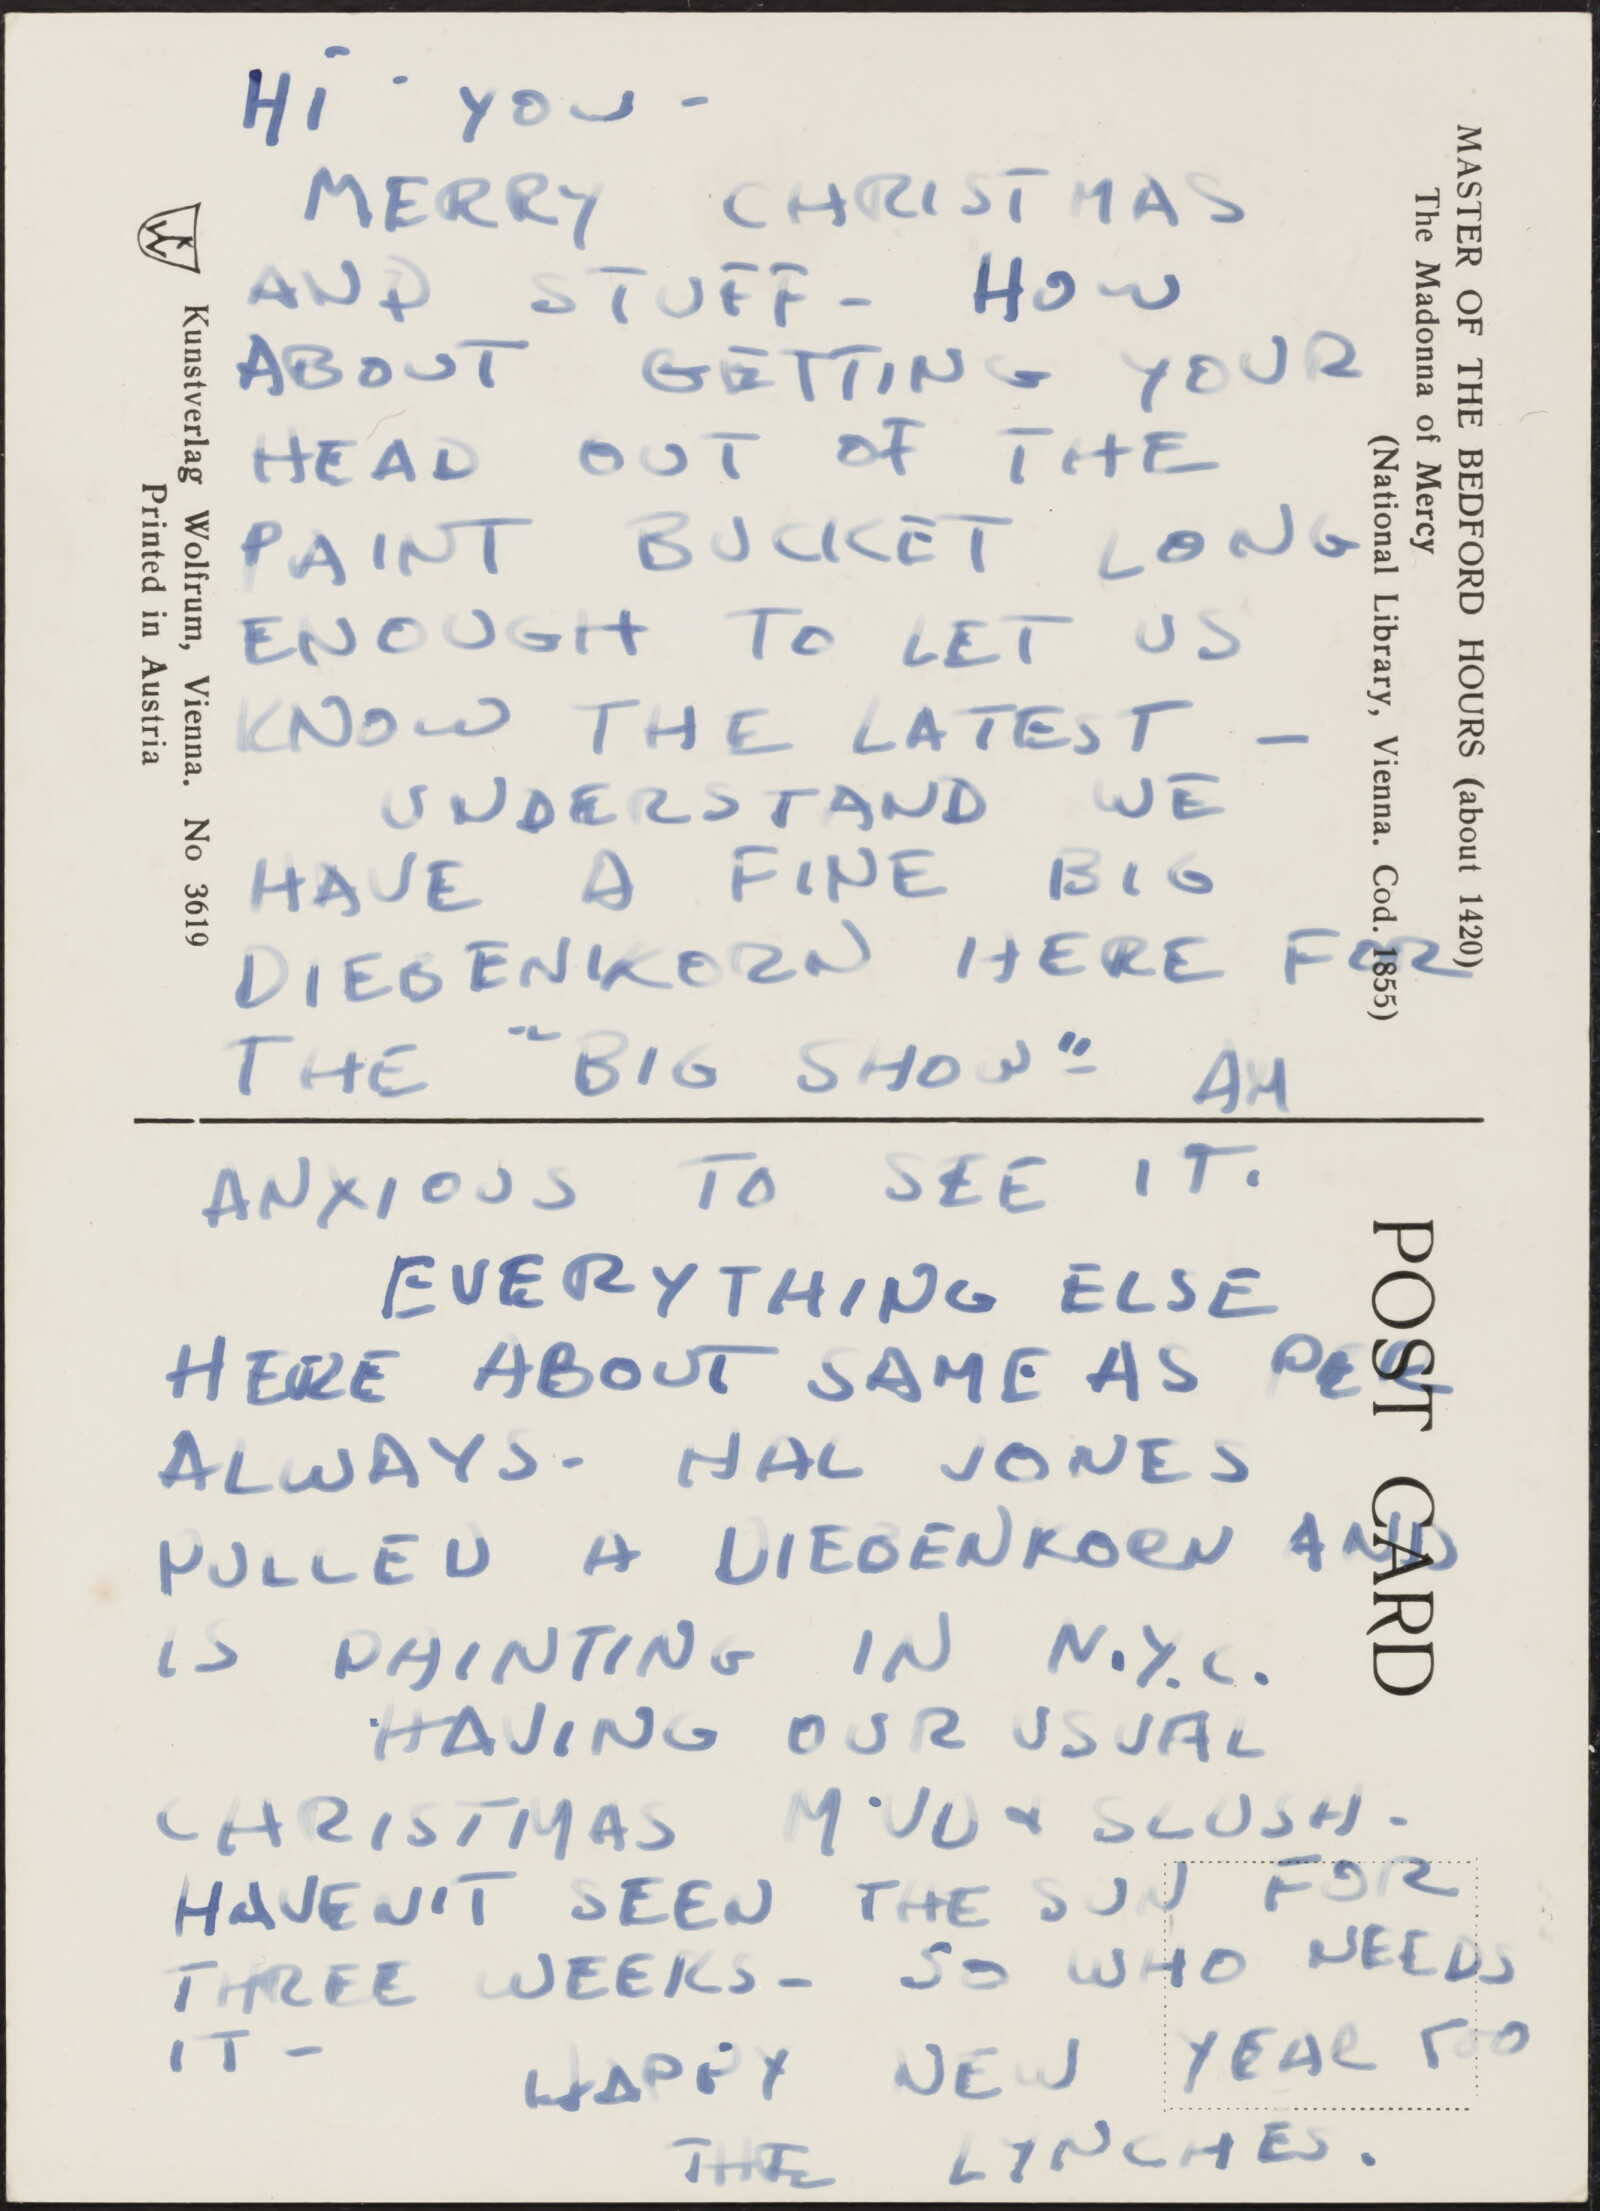 HI - YOU -
MERRY CHRISTMAS
AND STUFF - HOW
ABOUT GETTING YOUR
HEAD OUT OF THE
PAINT BUCKET LONG
ENOUGH TO LET US
KNOW THE LATEST -
UNDERSTAND WE
HAVE A FINE BIG
DIEBENKORN HERE FOR
THE "BIG SHOW" - AM
ANXIOUS TO SEE IT.
EVERYTHING ELSE
HERE ABOUT SAME AS PER
ALWAYS - HAL JONES
PULLED A DIEBENKORN AND
IS PAINTING IN N.Y.C.
HAVING OUR USUAL
CHRISTMAS MUD & SLUSH -
HAVEN'T SEEN THE SUN FOR
THREE WEEKS - SO WHO NEEDS
IT -
HAPPY NEW YEAR TOO
THE LYNCHES.
MASTER OF THE BEDFORD HOURS (about 1420)
The Madonna of Mercy
(National Library, Vienna. Cod. 1855)
POST CARD
WK
Kunstverlag Wolfrum, Vienna. No 3619
Printed in Austria